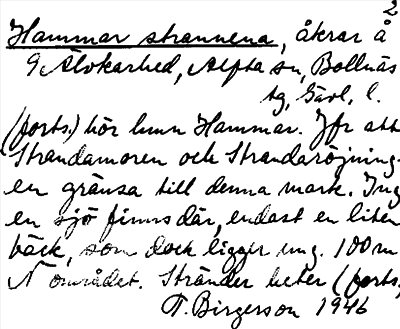 2
Hammar strannena, åkrar å
9 Älvkarhed, Alfta sn, Bollnäs
tg, Gävl. l.
(forts.) hör hmn Hammar. Jfr att
Strandamoren och Strandaröjning-
en gränsa till denna mark. Ing
en sjö finns där, endast en liten
bäck, som dock ligger ung. 100 m
N området. Stränder heter (forts.)
T. Birgerson 1946